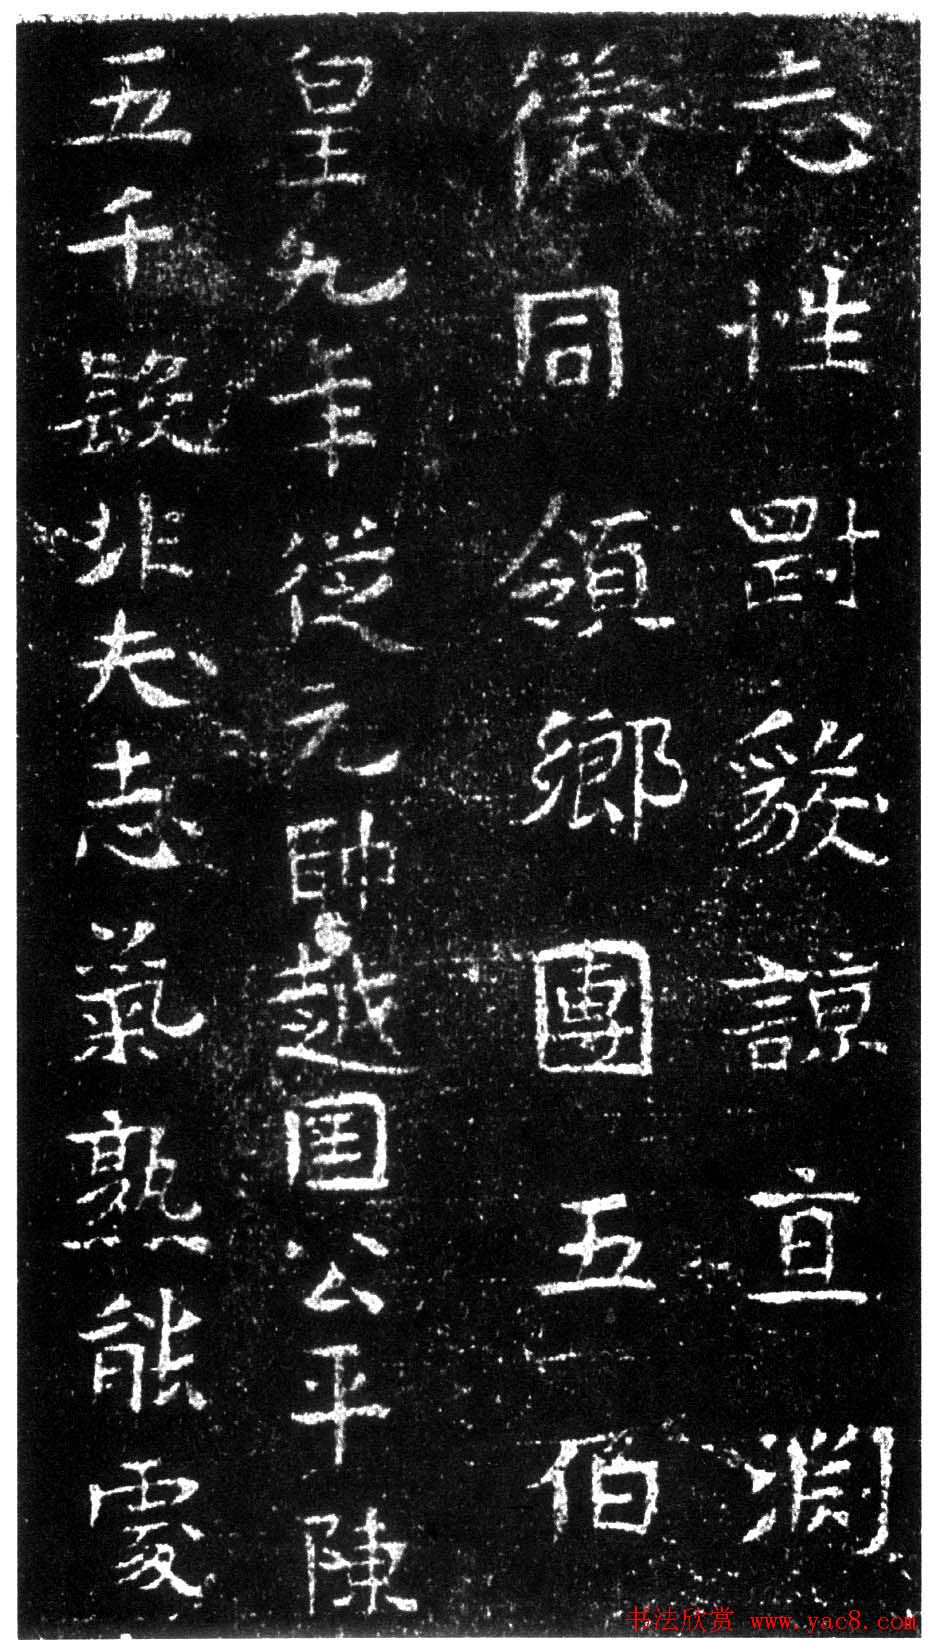 志性剛毅諒亘淵
儀同領鄉團五伯
皇九年從元帥越國公平陳
五千段非夫志氣熟能處
书法欣赏 www.yac8.com